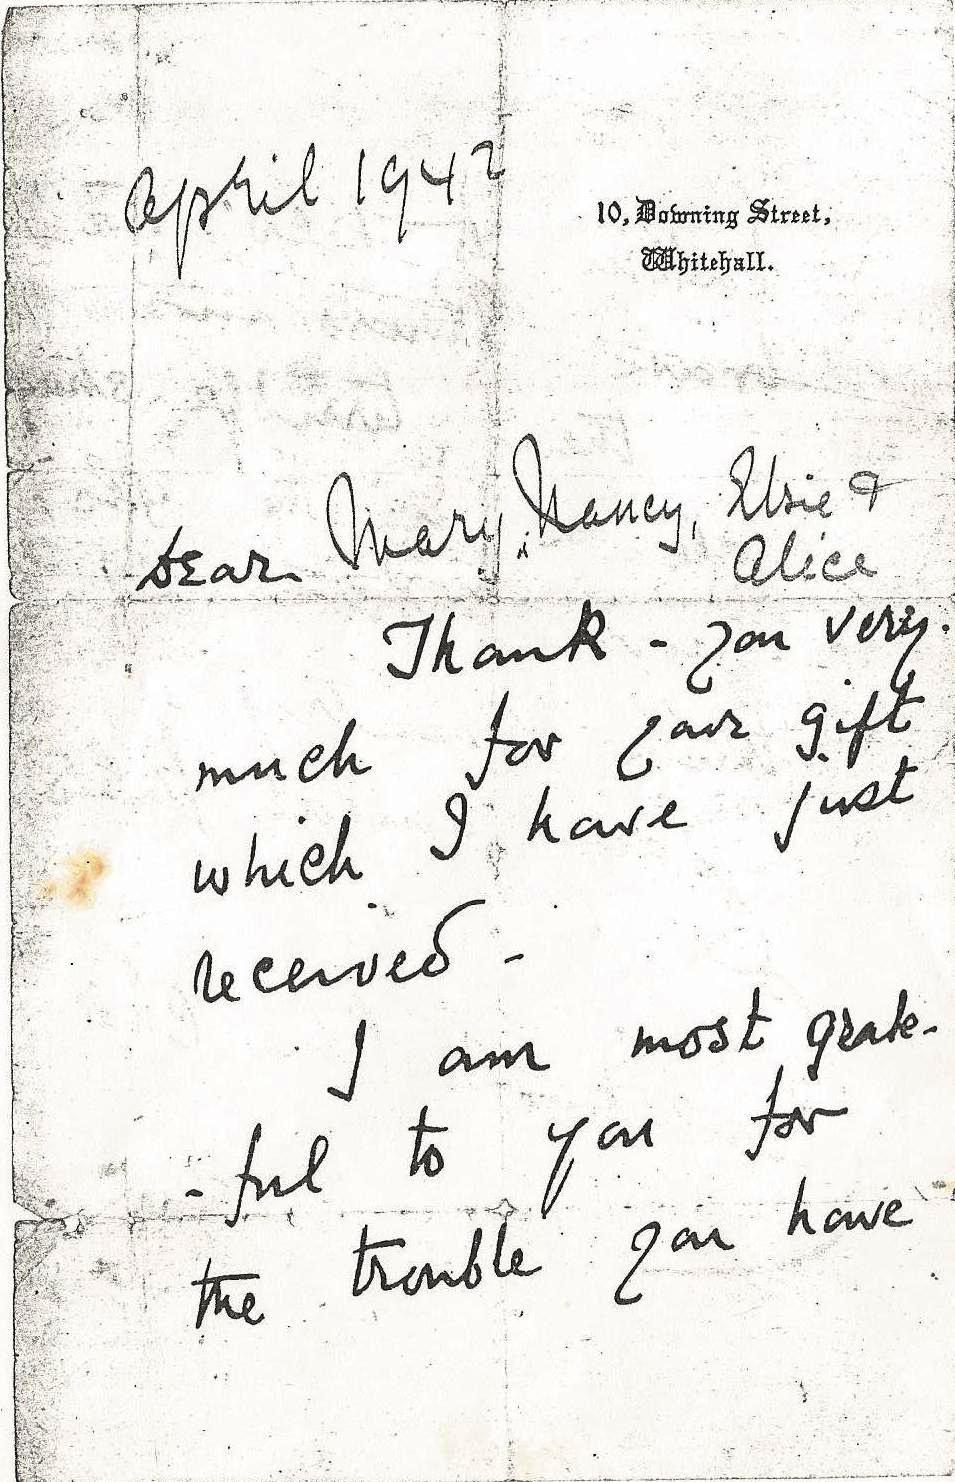 April 1942
10, Downing Street,
Whitehall.
Dear Mary, Nancy, Elsie &
Alice
Thank - you very
much for your gift
which I have just
received -
I am most grate-
- ful to you for
the trouble you have